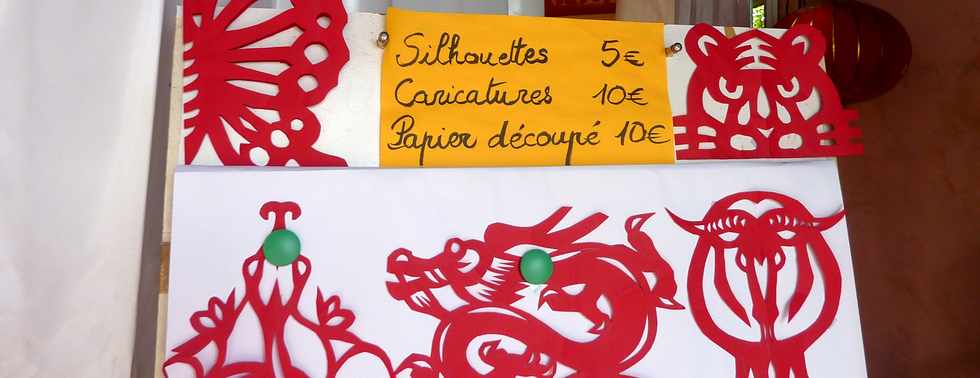 Silhouettes 5€
Caricatures 10€
Papier découpé 10€